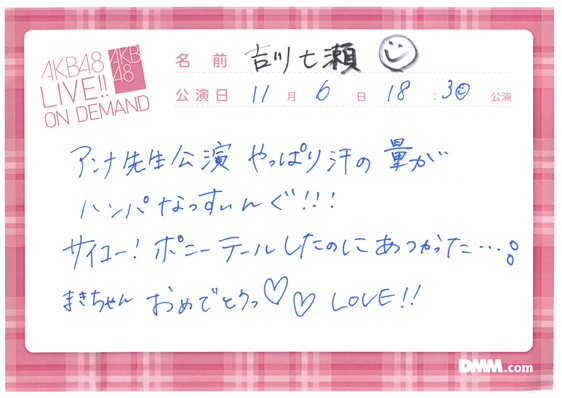 AKB48
LIVE!!
ON DEMAND
AKB
48
名前 吉川七瀬
公演日 11月6日 18:30公演
アンナ先生公演 やっぱり汗の量が
ハンパなっすぃんぐ!!!
サイコー!ポニーテールしたのにあつかった…。
まきちゃん おめでとうっ♡♡ LOVE!!
DMM.com